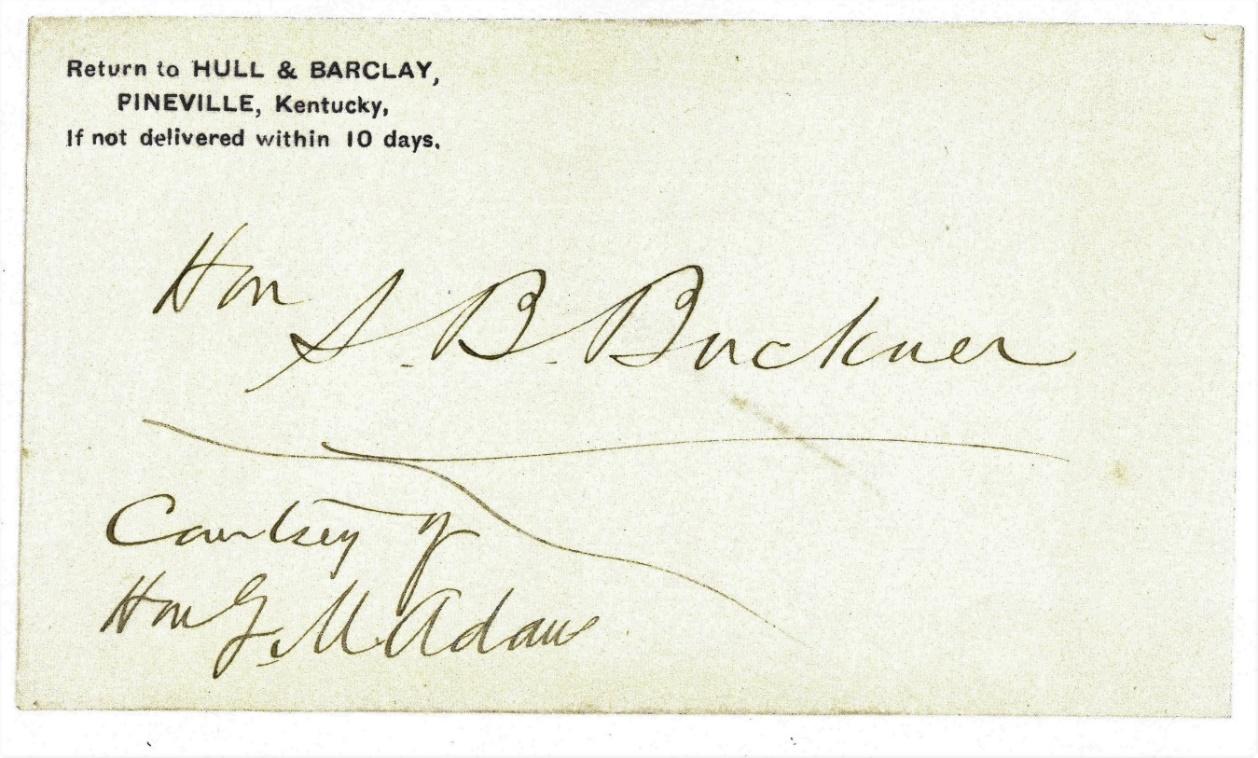 Return to HULL & BARCLAY,
PINEVILLE, Kentucky,
If not delivered within 10 days.
Hon
S. B. Buckner
Courtsey of
Hon G. M. Adams